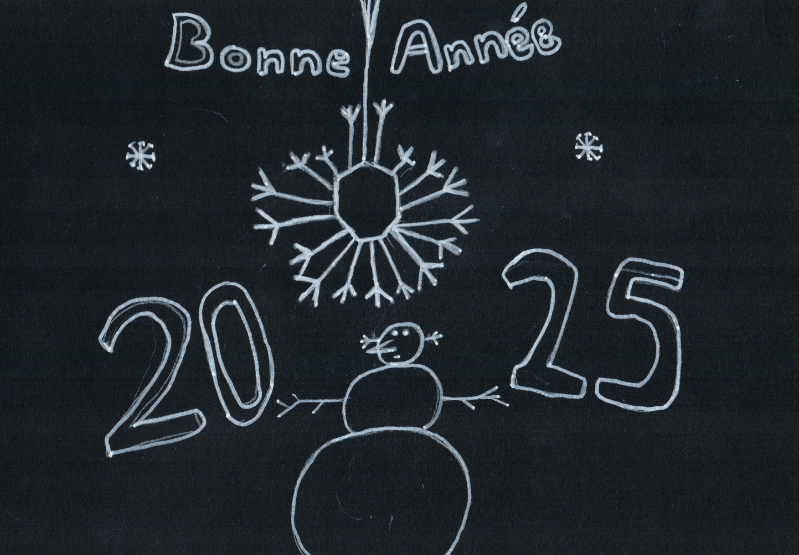 Bonne Année
2025